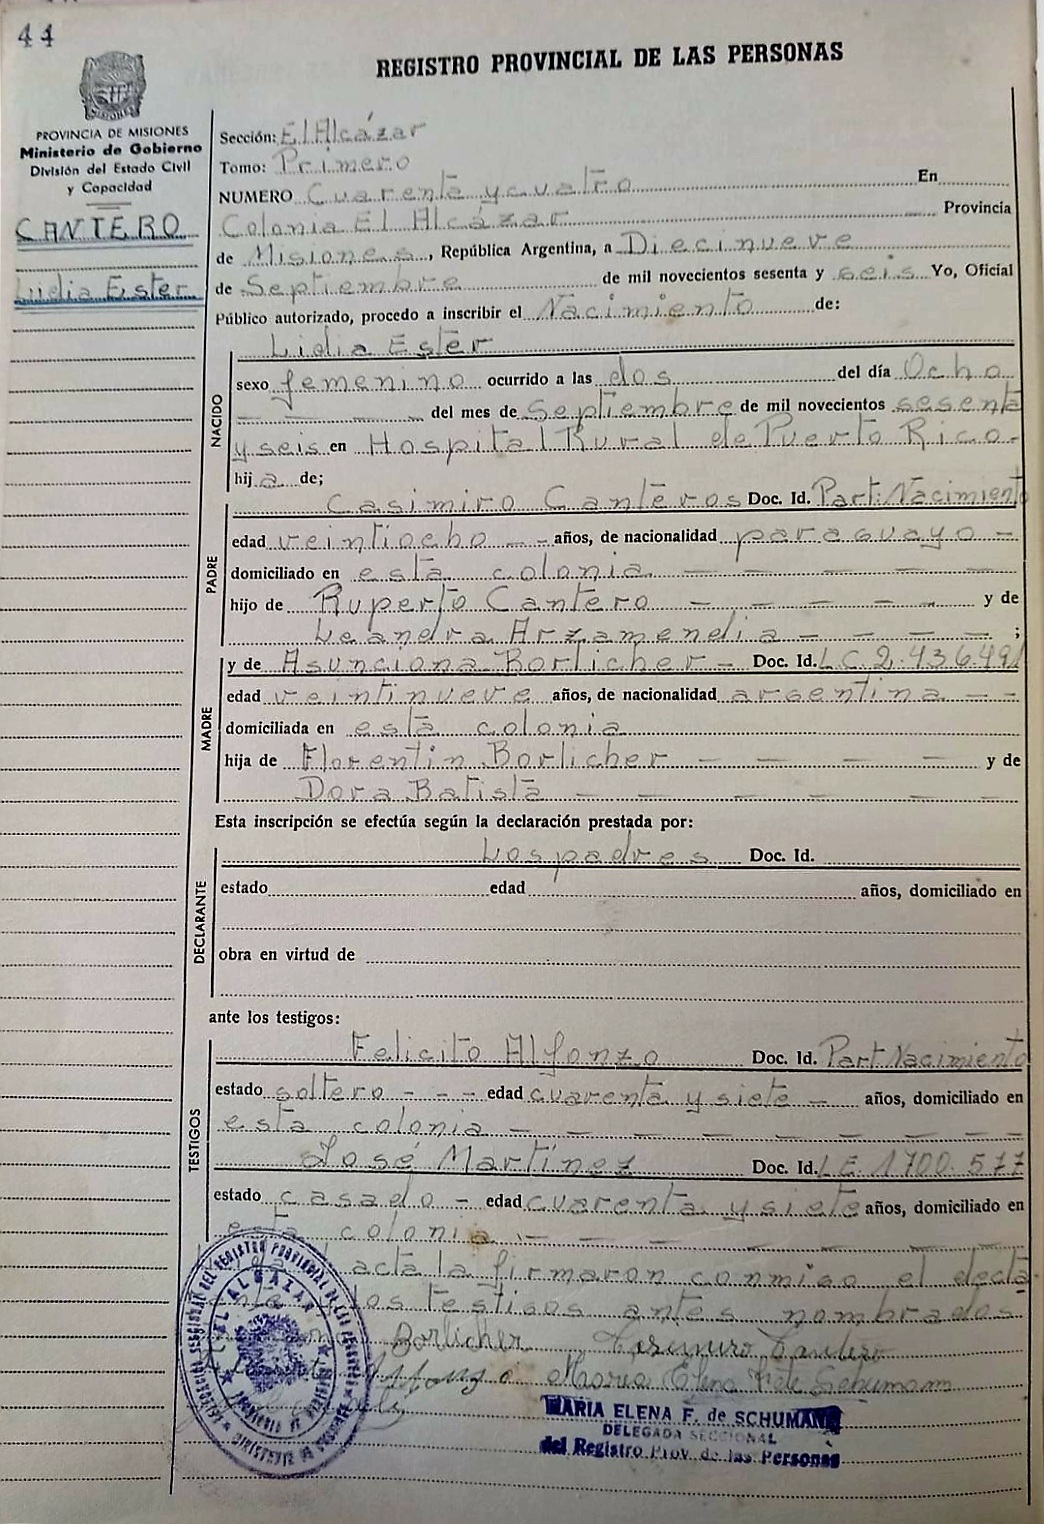 44
REGISTRO PROVINCIAL DE LAS PERSONAS
PROVINCIA DE MISIONES
Ministerio de Gobierno
División del Estado Civil
y Capacidad
CANTERO
Lidia Ester
Sección: El Alcázar
Tomo: Primero
NUMERO Cuarenta y cuatro En
Colonia El Alcázar Provincia
de Misiones, República Argentina, a Diecinueve
de Septiembre de mil novecientos sesenta y seis Yo, Oficial
Público autorizado, procedo a inscribir el Nacimiento de:
Lidia Ester
NACIDO
sexo femenino ocurrido a las dos del día Ocho
— — — del mes de Septiembre de mil novecientos sesenta
y seis en Hospital Rural de Puerto Rico.-
hija de;
PADRE
Casimiro Canteros Doc. Id. Part: Nacimiento
edad veintiocho — — años, de nacionalidad paraguayo —
domiciliado en esta colonia — — — — — —
hijo de Ruperto Cantero — — — — — y de
Leandra Arzamendia — — — — ;
MADRE
y de Asunciona Borlicher — Doc. Id. L.C. 2.436.491
edad veintinueve años, de nacionalidad argentina — —
domiciliada en esta colonia
hija de Florentin Borlicher — — — — — y de
Dora Batista — — — — — — —
Esta inscripción se efectúa según la declaración prestada por:
DECLARANTE
Los padres Doc. Id.
estado edad años, domiciliado en
obra en virtud de
ante los testigos:
TESTIGOS
Felicito Alfonzo Doc. Id. Part Nacimiento
estado soltero - - - edad cuarenta y siete — años, domiciliado en
esta colonia — — — — — — — —
José Martínez Doc. Id. L E. 1700. 577
estado casado - edad cuarenta y siete años, domiciliado en
esta colonia .— — — — — — —
acta la firmaron conmigo el decla
los testigos antes nombrados.
Borlicher Cantero
Alfonzo Maria Elena F de Schumann
MARIA ELENA F. de SCHUMANN
DELEGADA SECCIONAL
del Registro Prov. de las Personas
DEL REGISTRO PROVINCIAL DE LAS PERSONAS
ALCAZAR